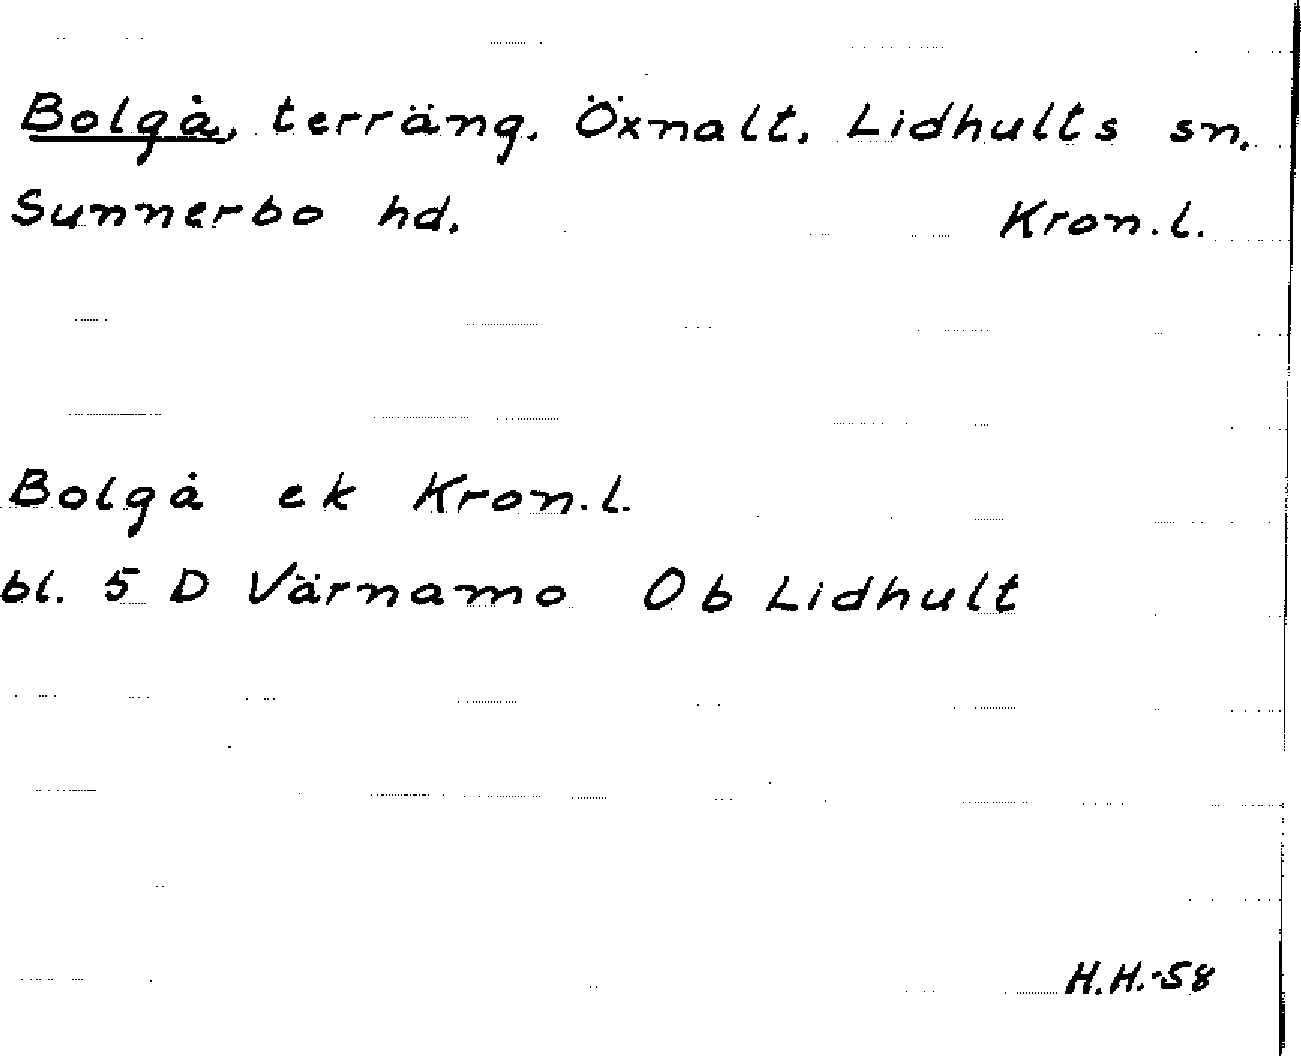 Bolgå, terräng. Öxnalt. Lidhults sn.
Sunnerbo hd. Kron.l.
Bolgå ek Kron.l.
bl. 5 D Värnamo Ob Lidhult
H.H.-58